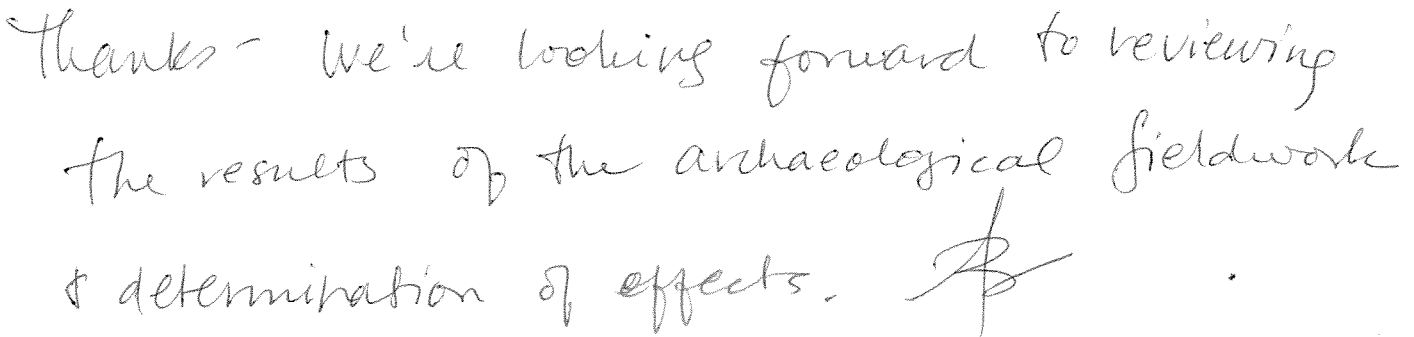 Thanks - We're looking forward to reviewing
the results of the archaeological fieldwork
& determination of effects.